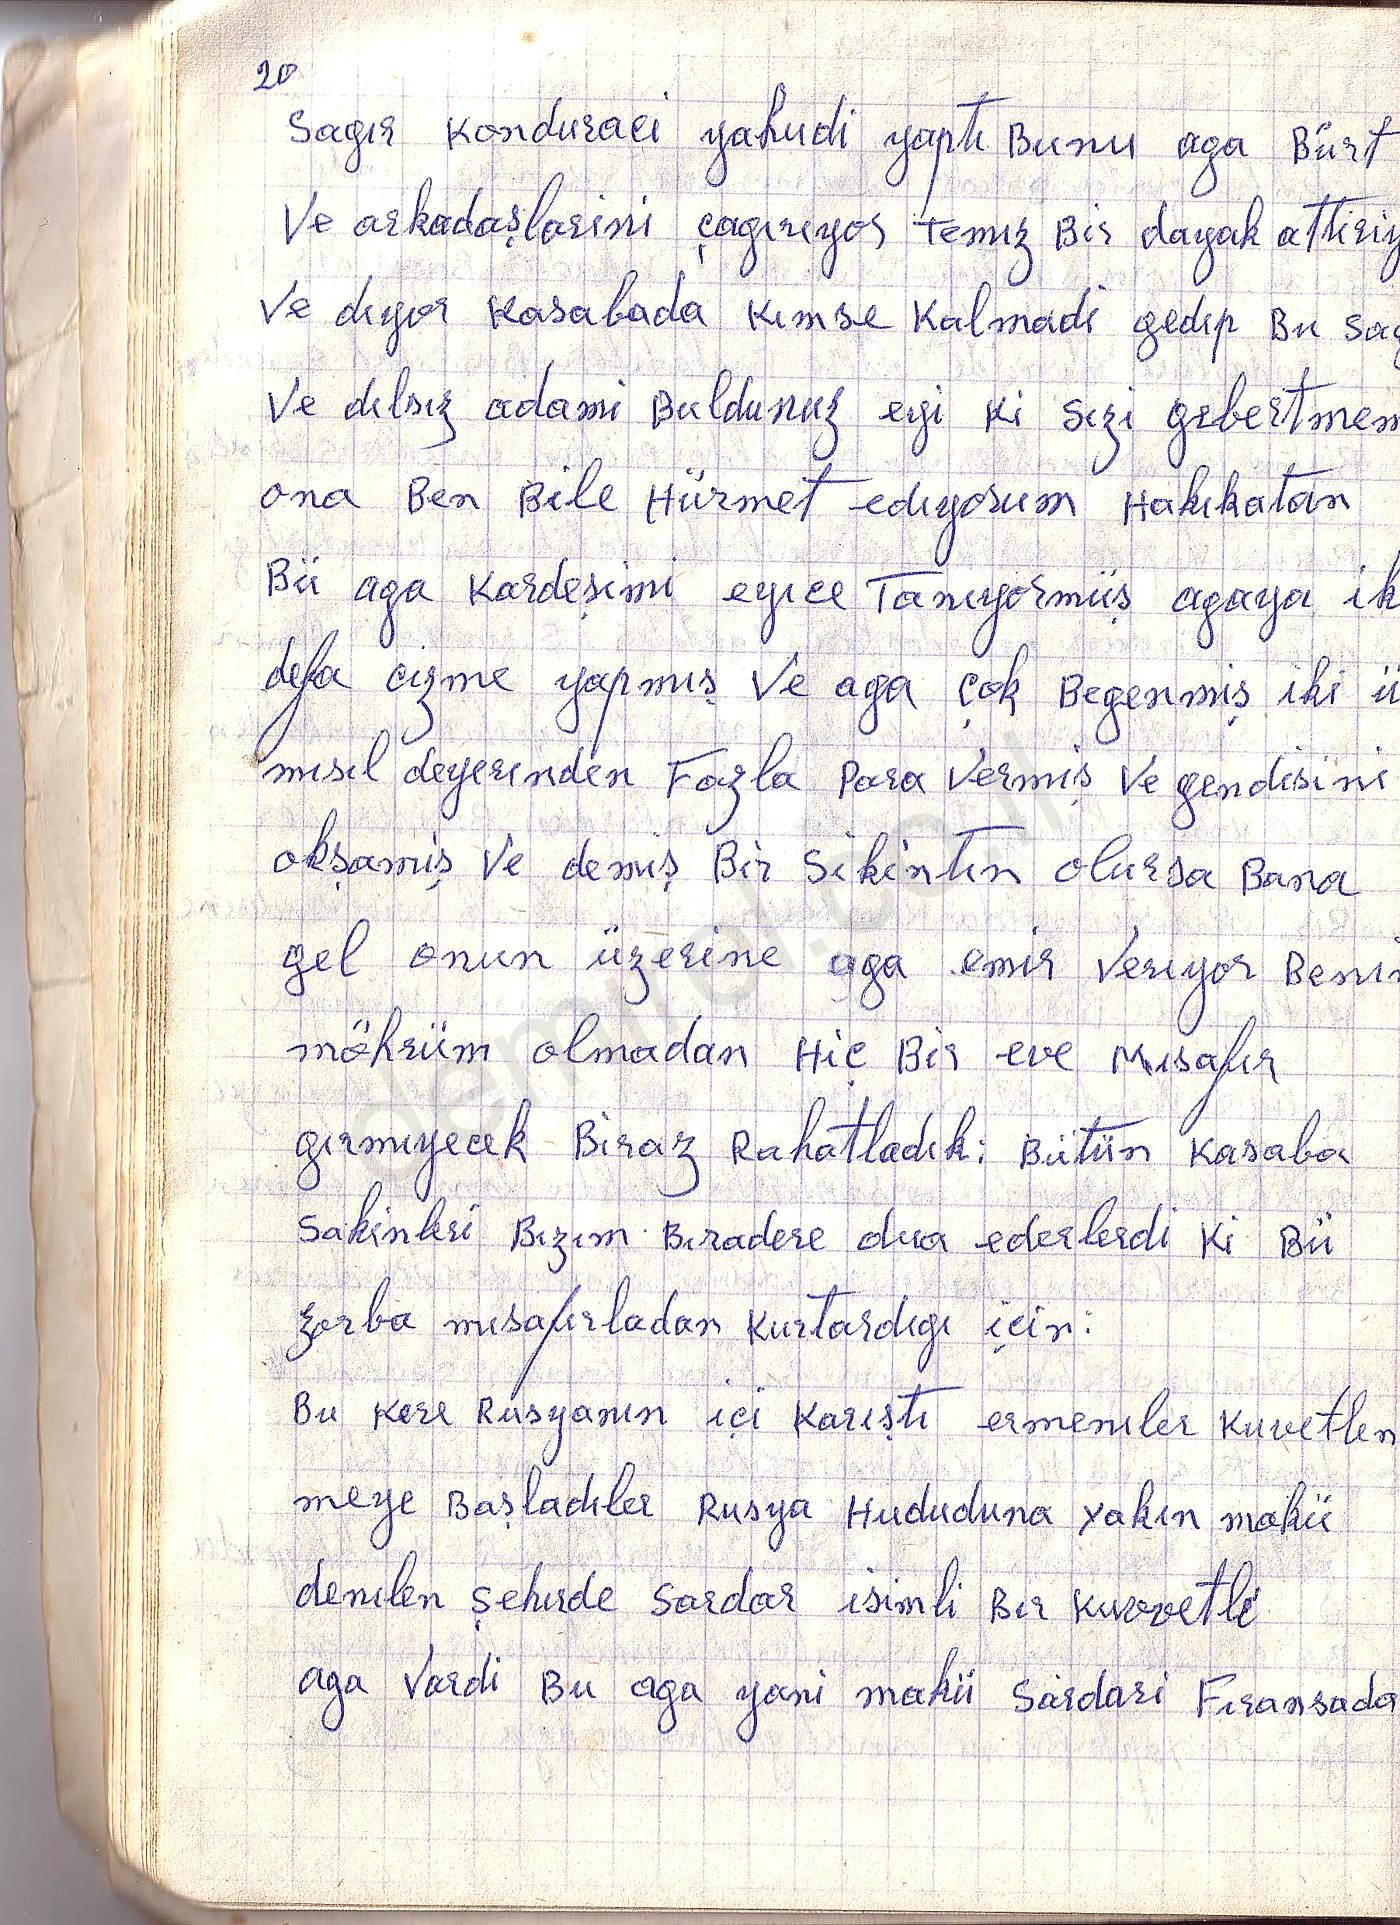 20
Sagır Konduraci yahudi yaptı Bunu aga Bürt
Ve arkadaşlarini çagırıyor Temız Bir dayak attiriy
Ve dıyor Kasabada Kımse Kalmadi gedıp Bu sag
Ve dılsız adami Buldunuz eyi Ki Sızi gebertmem
ona Ben Bile Hürmet edıyorum Hakıkatan
Bü aga Kardeşimi eyıce Tanıyormüş agaya ik
defa cizme yapmış Ve aga çok Begenmiş iki ü
mısıl deyerınden Fazla Para Vermiş Ve gendisini
okşamiş Ve demiş Bir Sikintın olursa Bana
gel onun üzerine aga emir Verıyor Benı
möhrüm olmadan Hiç Bir eve Mısafır
gırmıyecek Biraz Rahatladık: Bütün Kasaba
Sakinleri Bızım Bıradere dua ederlerdi Ki Bü
zorba mısafırladan Kurtardıgı için:
Bu Kere Rusyanın içi Karıştı ermenıler Kuvetlen
meye Başladıler Rusya Hududuna Yakın makü
denılen Şehırde Sardar isimli Bır Kuvvetli
aga Vardi Bu aga yani makü Sardari Fıransada
demirel.co.il